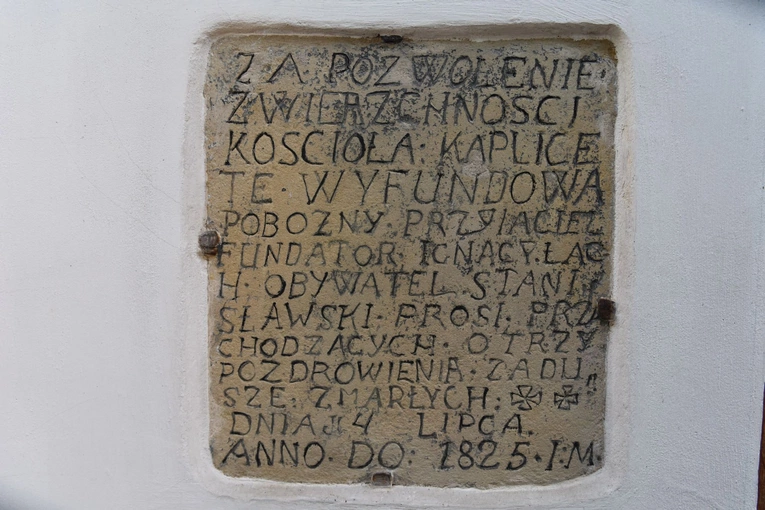 ZA POZWOLENIE
ZWIERZCHNOSCI
KOSCIOŁA. KAPLICE
TE. WYFUNDOWA
POBOZNY. PRZYIACIEZ
FUNDATOR. IGNACY. ŁAC
H. OBYWATEL STANI
SŁAWSKI. PROSI. PRZ
CHODZACYCH. O TRZY
POZDROWIENIA. ZA DU
SZE. ZMARŁYCH.
DNIA 4 LIPCA.
ANNO. DO: 1825. I:M.